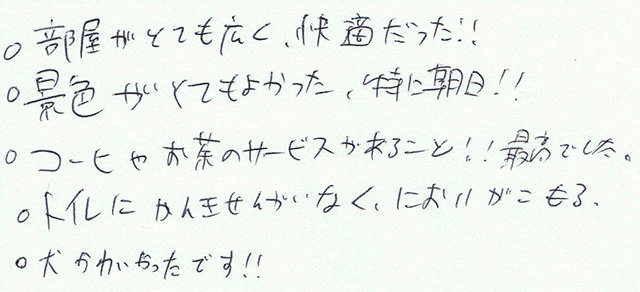 ○ 部屋がとても広く、快適だった!!
○ 景色がとてもよかった、特に朝日!!
○ コーヒやお茶のサービスがあること!!最高でした。
○ トイレにかんきせんがいなく、においがこもる、
○ 犬かわいかったです!!